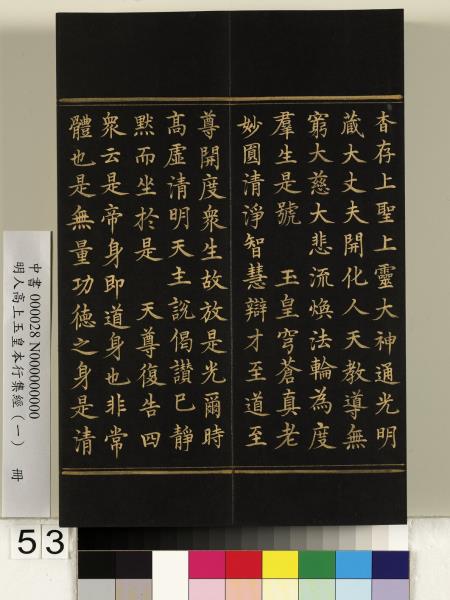 杳存上聖上靈大神通光明
藏大丈夫開化人天教導無
窮大慈大悲流煥法輪為度
羣生是號　玉皇穹蒼真老
妙圓清淨智慧辯才至道至
尊開度衆生故放是光爾時
高虛清明天主說偈讚已靜
黙而坐於是　天尊復告四
衆云是帝身即道身也非常
體也是無量功德之身是清
中書 000028 N000000000
明人高上玉皇本行集經（一）　冊
53